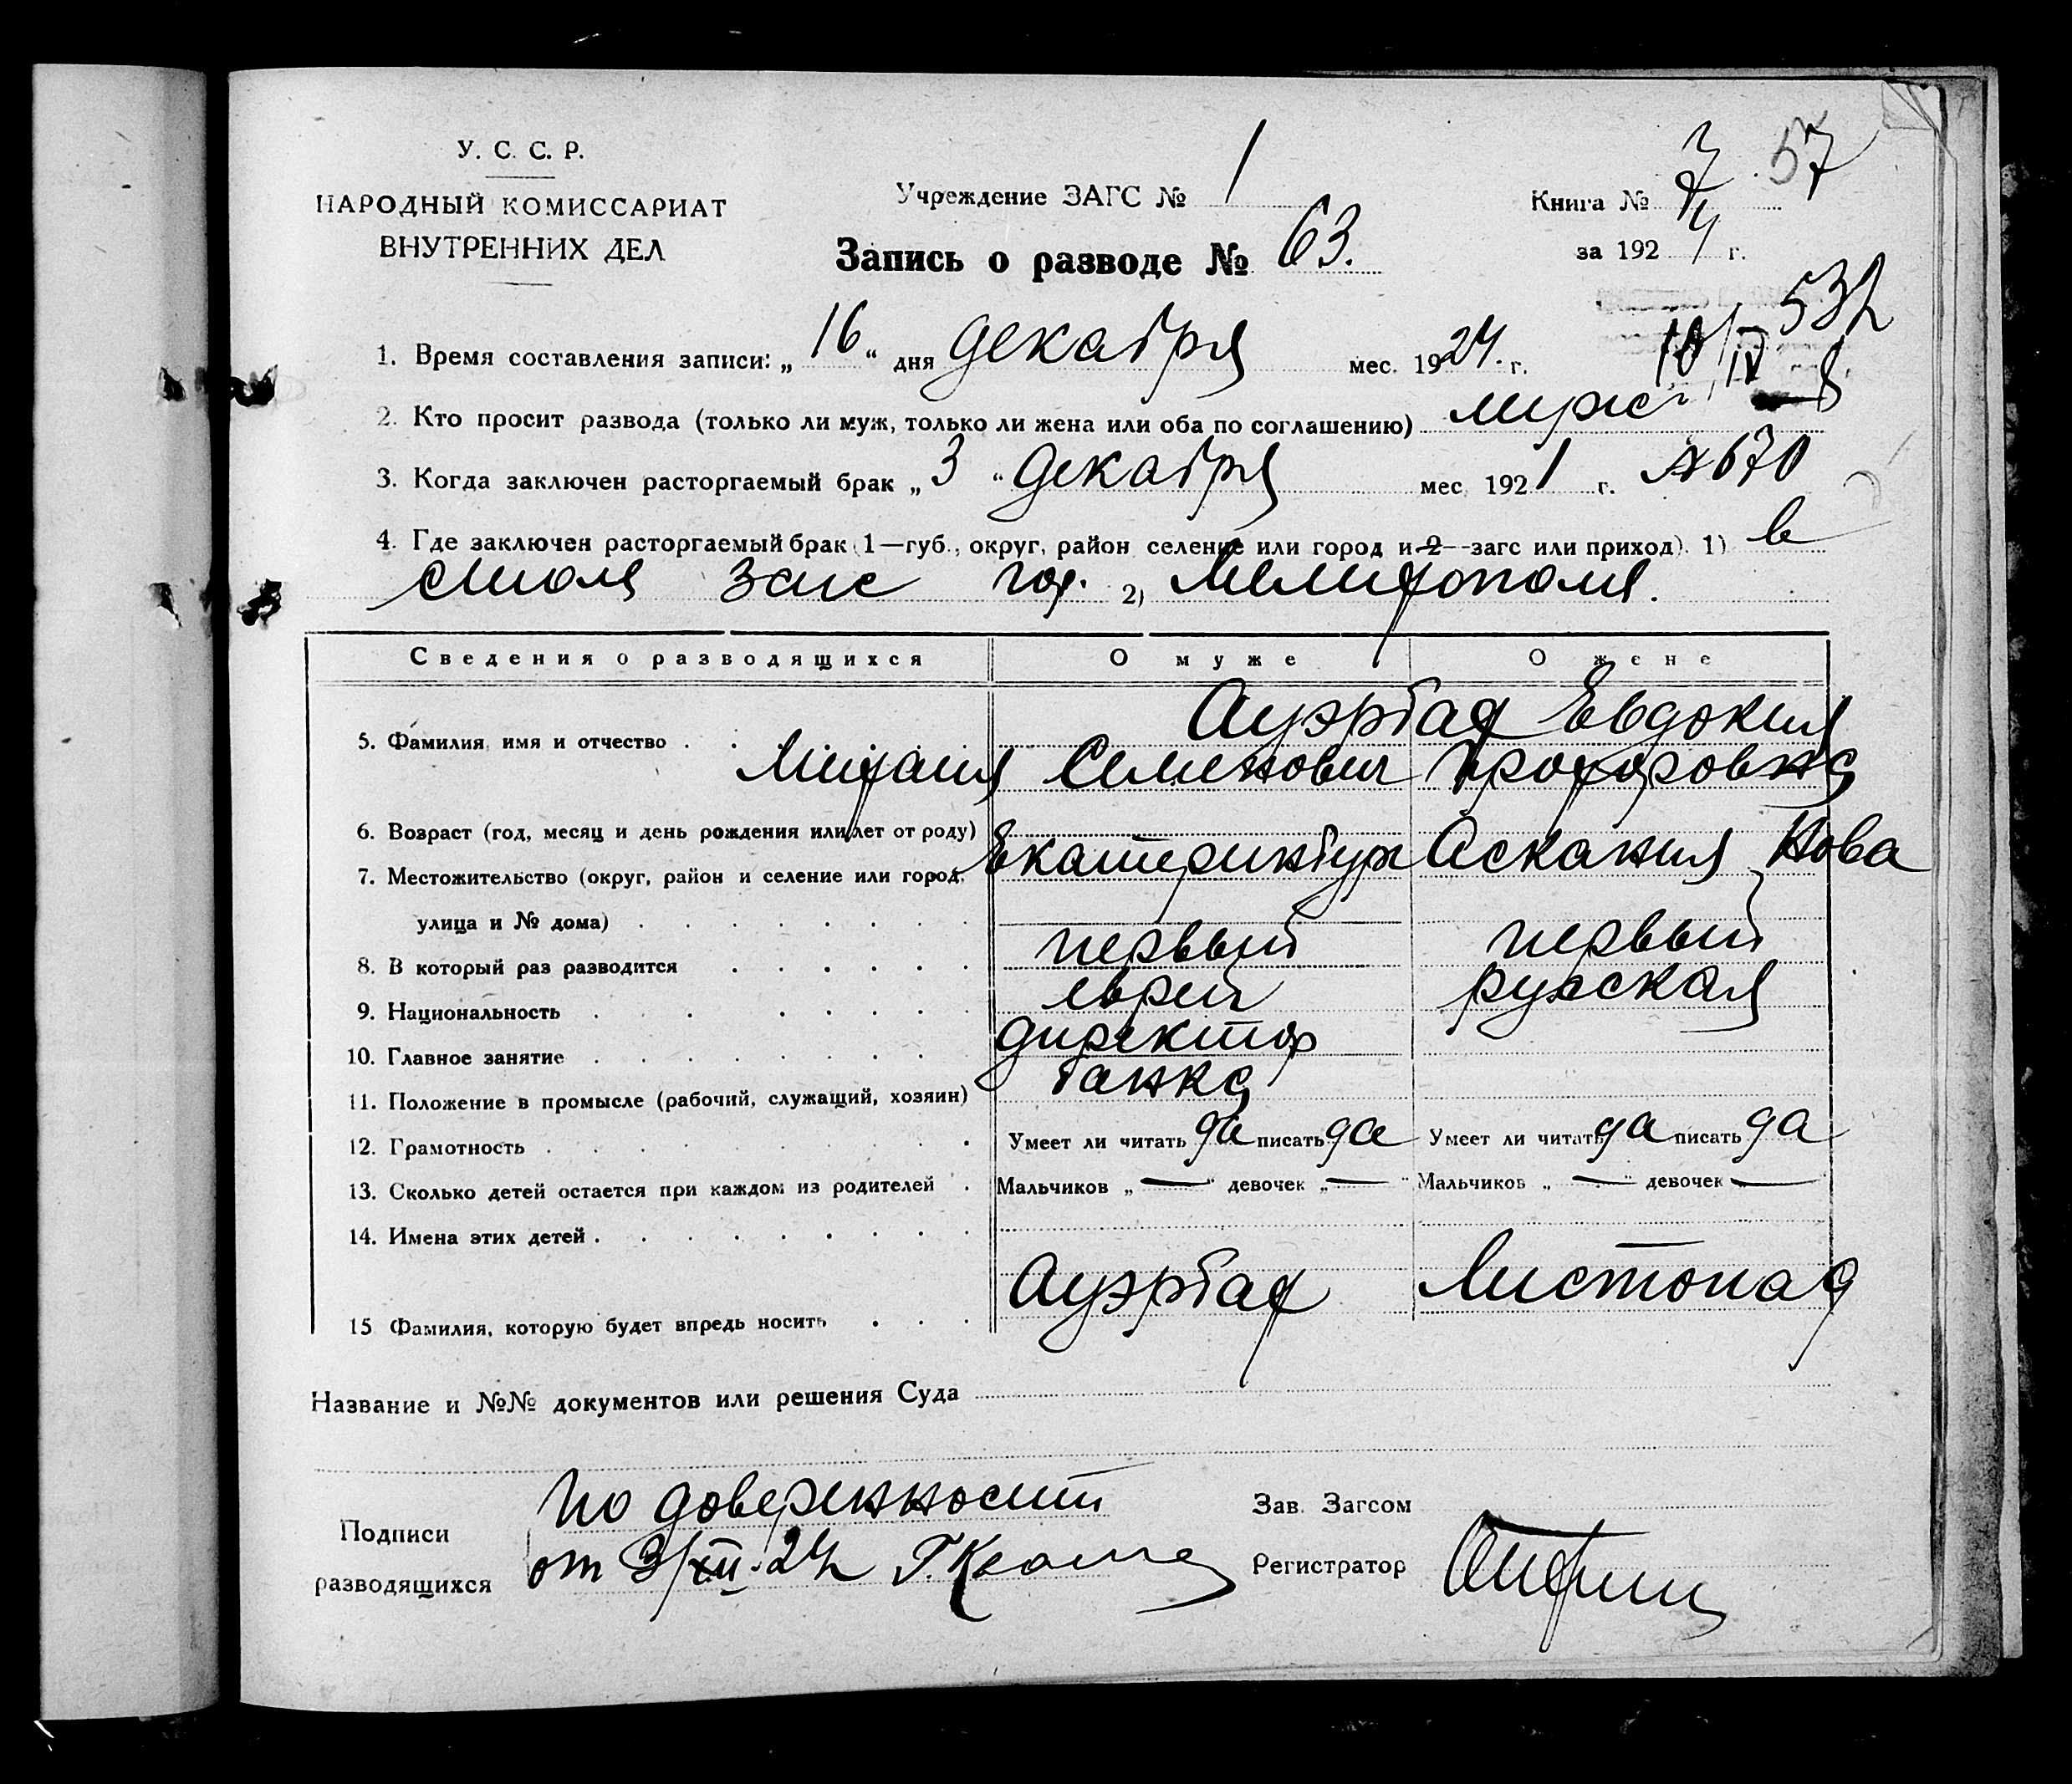 У. С. С. Р.
НАРОДНЫЙ КОМИССАРИАТ
ВНУТРЕННИХ ДЕЛ
Учреждение ЗАГС № 1
Книга № 57
за 1924 г.
Запись о разводе № 63.
532
10/IV
1. Время составления записи: „16“ дня декабря мес. 1924 г.
2. Кто просит развода (только ли муж, только ли жена или оба по соглашению) муж
3. Когда заключен расторгаемый брак „3“ декабря мес. 1921 г. №670
4. Где заключен расторгаемый брак (1—губ., округ, район, селение или город и 2—загс или приход). 1) в
столе загс гор. 2) Мелитополя.
Сведения о разводящихся О муже О жене
5. Фамилия, имя и отчество . . Ауэрбах Михаил Семенович Евдокия Прохоровна
6. Возраст (год, месяц и день рождения или лет от роду)
7. Местожительство (округ, район и селение или город, Екатеринбург Аскания Нова
улица и № дома)
8. В который раз разводится первый первый
9. Национальность еврей русская
10. Главное занятие директор
11. Положение в промысле (рабочий, служащий, хозяин) банка
12. Грамотность Умеет ли читать да писать да Умеет ли читать да писать да
13. Сколько детей остается при каждом из родителей . Мальчиков „—“ девочек „—“ Мальчиков „—“ девочек „—
14. Имена этих детей
15 Фамилия, которую будет впредь носить Ауэрбах Листопад
Название и №№ документов или решения Суда
Подписи разводящихся
по доверенности
от 3/XII-24г
Зав. Загсом
Регистратор